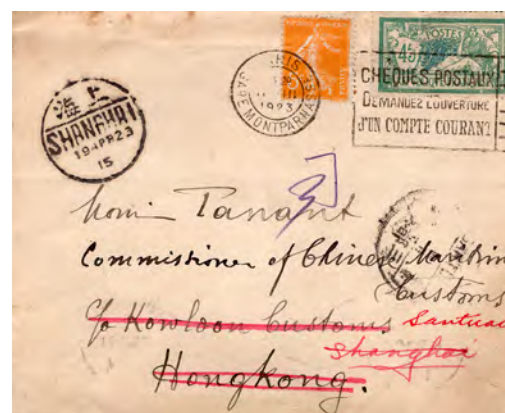 POSTES
45
1923
GARE MONTPARNASSE
CHEQUES POSTAUX
DEMANDEZ L'OUVERTURE
D'UN COMPTE COURANT
海上
SHANGHAI
19 APR 23
15
Tanant
Commissioner of Chinese Maritim
Customs
c/o Kowloon Customs Santuao
Shanghai
Hongkong.